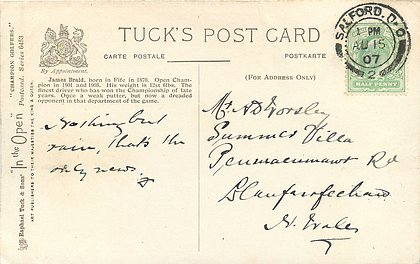 TUCK'S POST CARD
CARTE POSTALE
POSTKARTE
By Appointment.
(FOR ADDRESS ONLY)
SALFORD.
1 PM
AU 15
07
2
HALF PENNY
James Braid, born in Fife in 1870. Open Cham-
pion in 1901 and 1905. His weight is 12st 6lbs. The
finest driver who has won the Championship of late
years. Once a weak putter, but now a dreaded
opponent in that department of the game.
Nothing but
rain, that's the
only news.
Mr A D Worsley
Summer Villa
Penmaenmawr Rd
Llanfairfechan
N. Wales
Raphael Tuck & Sons' "In the Open" Postcard. Series 6453 "CHAMPION GOLFERS."
ART PUBLISHERS TO THEIR MAJESTIES THE KING & QUEEN.